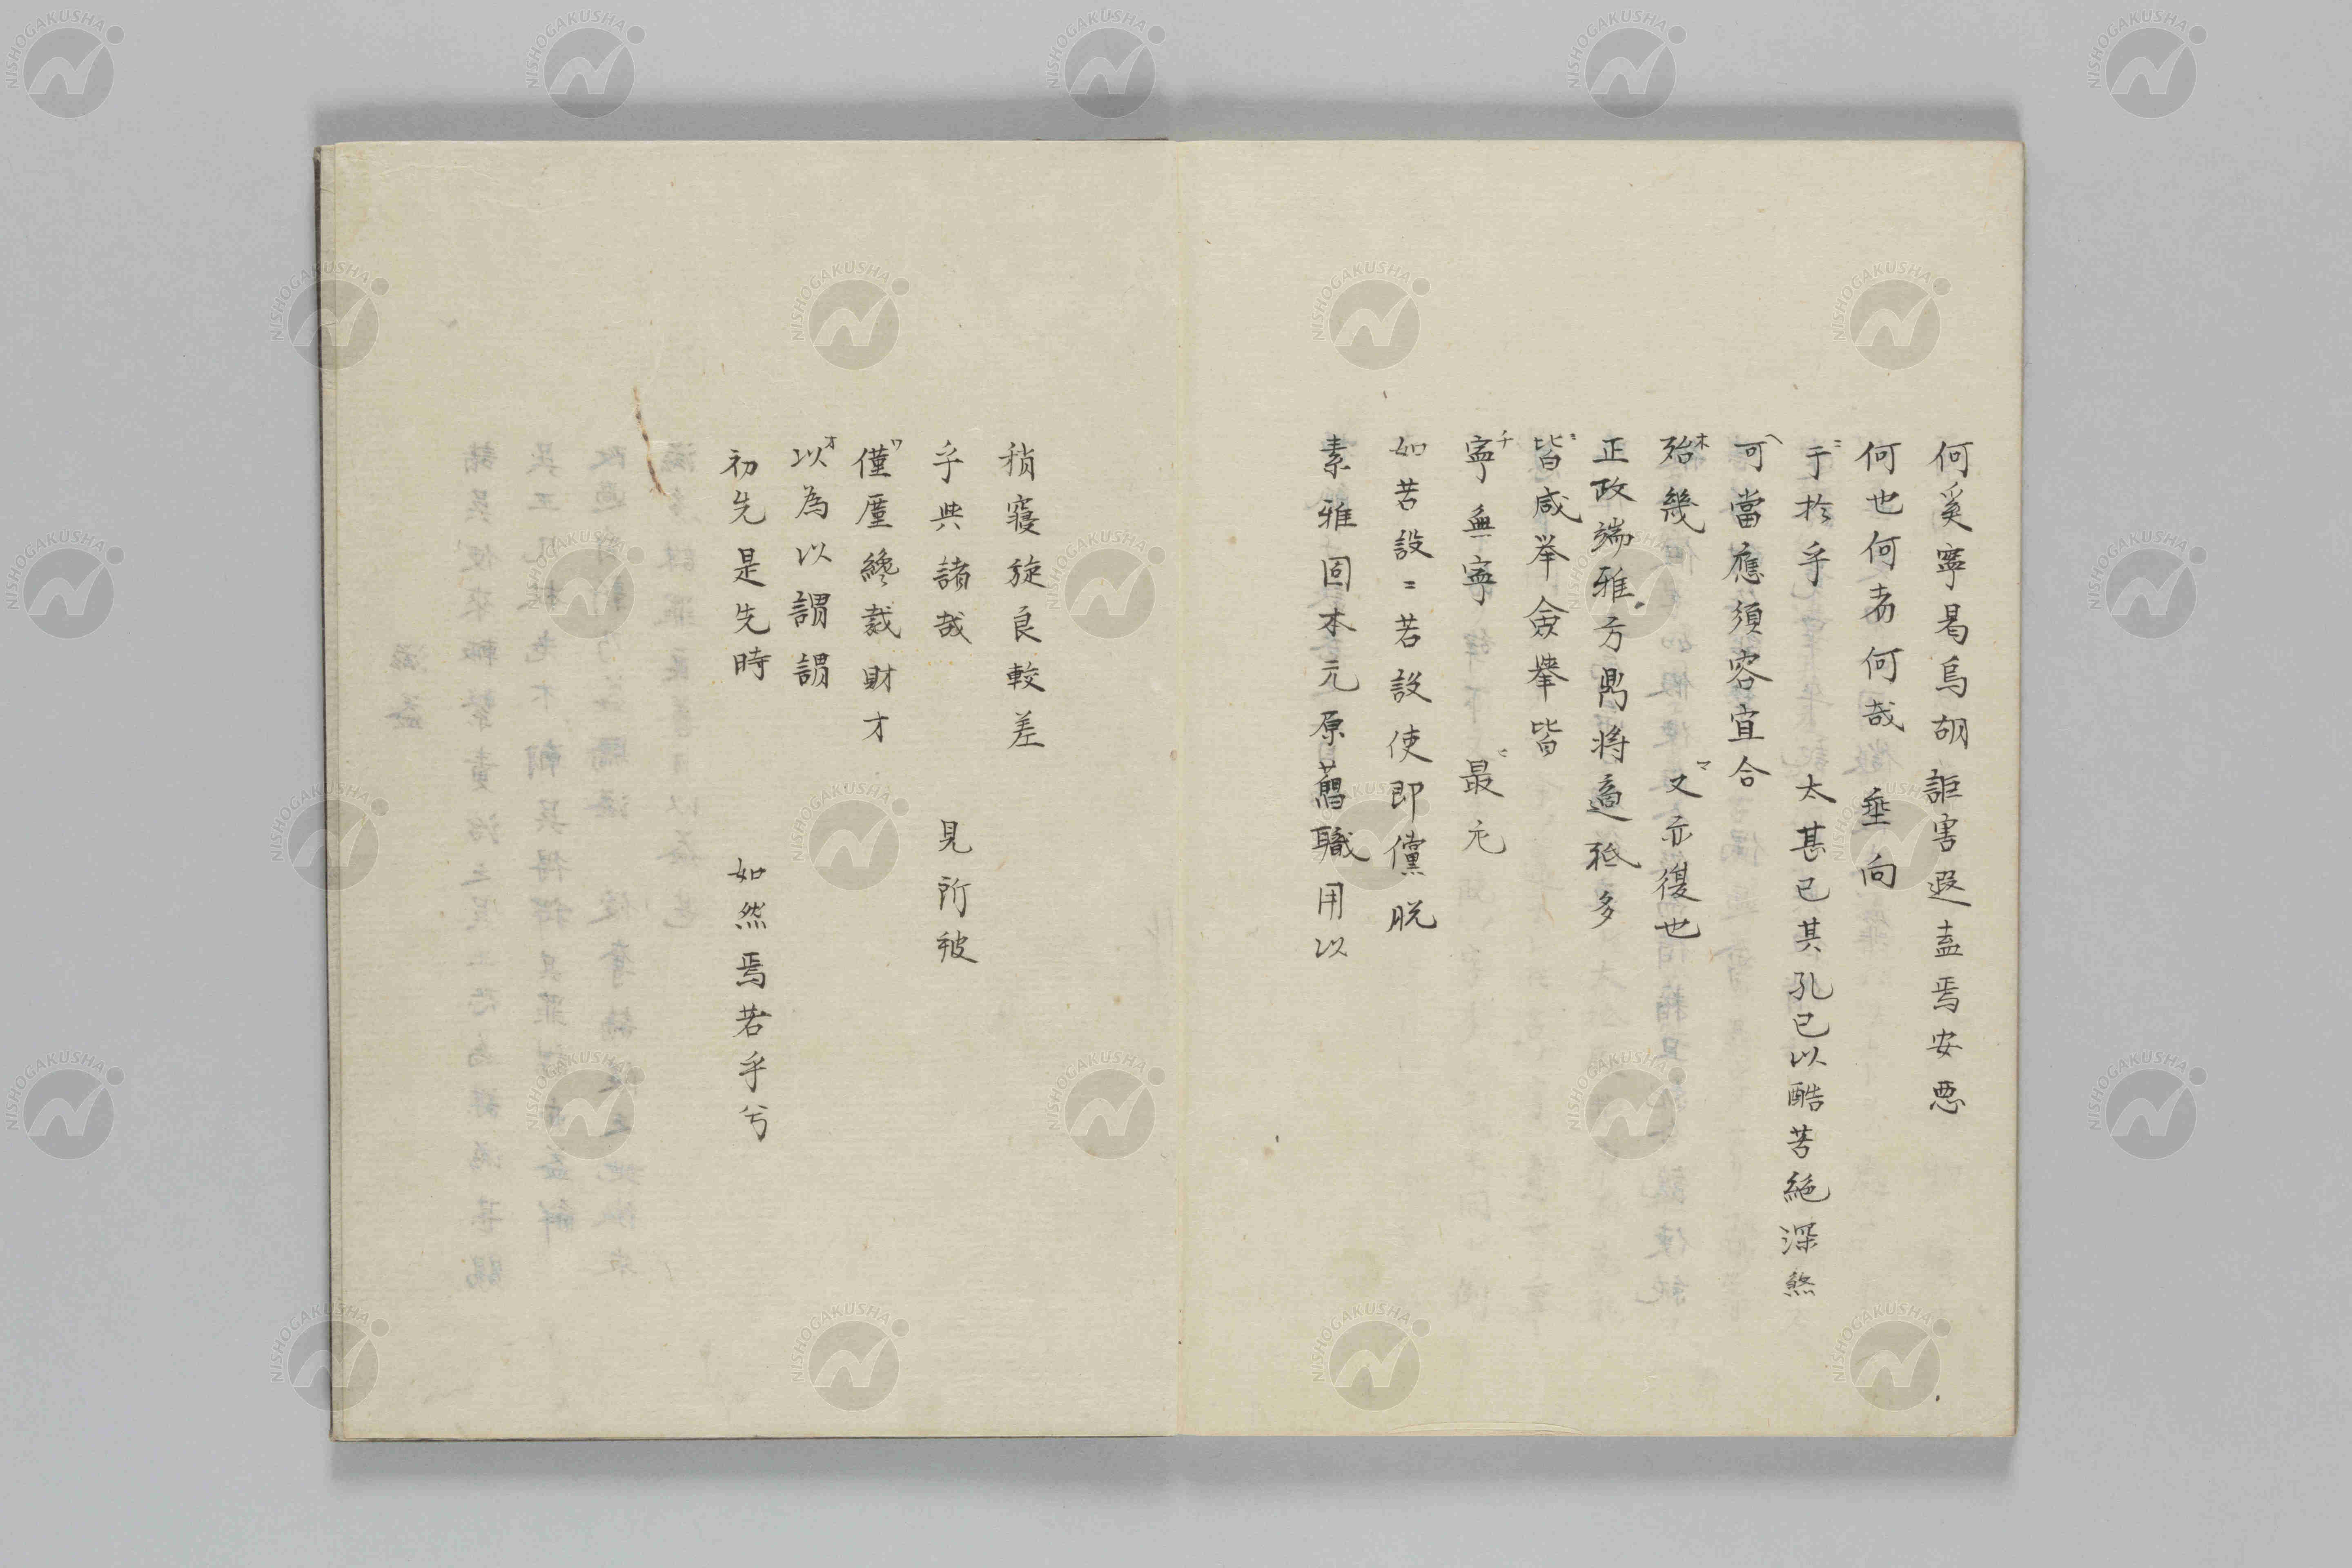 何奚寧曷烏胡詎害遐盍焉安惡
何也何者何哉 垂向
于於乎 太甚已其孔已以酷苦絶深煞
可當應須容宜合
殆幾 又亦復也
正政端雅方鼎将適祗多
皆咸举僉擧皆
寧無寧 最尤
如若設〻若設使即儻脱
素雅固本元原舊職用以
稍寖旋良較差
乎與諸哉 見所被
僅厪纔裁財才
以為以謂謂
初先是先時 如然焉若乎兮
NISHOGAKUSHA